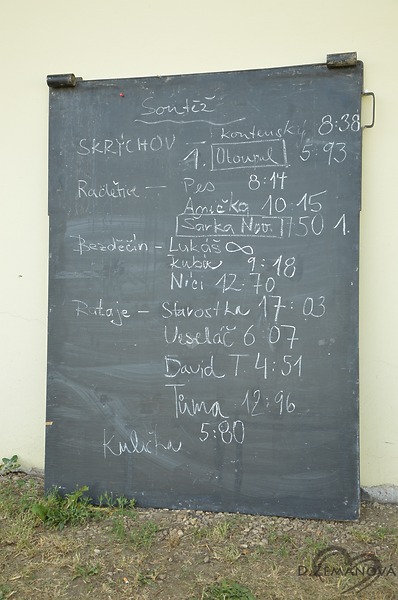 Soutěž
SKRÝCHOV kontenský 8:38
1. Oloupal 5:93
Radětice – Pes 8:14
Anička 10:15
Šárka Nov. 1750 1.
Bezděčín – Lukáš ∞
Kuba 9:18
Nici 12:70
Rataje – Starostka 17:03
Veseláč 6 07
David T 4:51
Tůma 12:96
Kulicha 5:80
D.ZEMANOVÁ